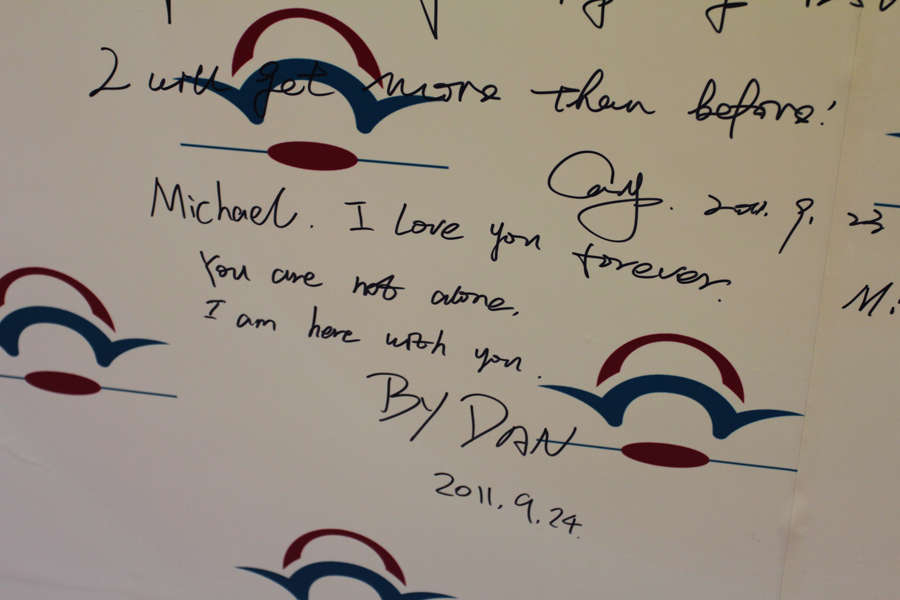 I will get more than before!
2011. 9. 23
Michael. I love you forever.
You are not alone.
I am here with you.
By DAN
2011.9.24.